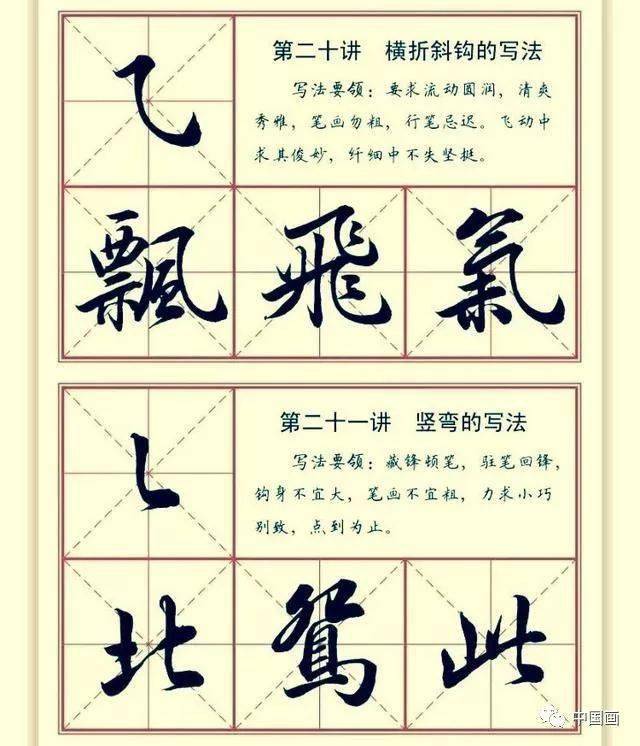 第二十讲 横折斜钩的写法
写法要领：要求流动圆润，清爽
秀雅，笔画勿粗，行笔忌迟。飞动中
求其俊妙，纤细中不失坚挺。
飄 飛 氣
第二十一讲 竖弯的写法
写法要领：藏锋顿笔，驻笔回锋，
钩身不宜大，笔画不宜粗，力求小巧
别致，点到为止。
北 鴛 此
中国画